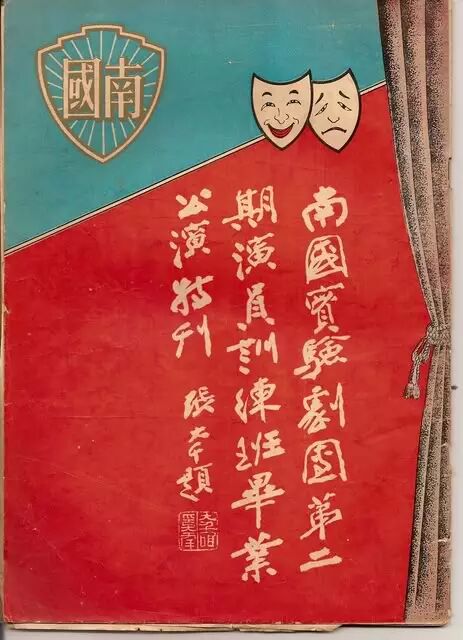 南國
南國實驗劇團第二
期演員訓練班畢業
公演特刊
張大千題